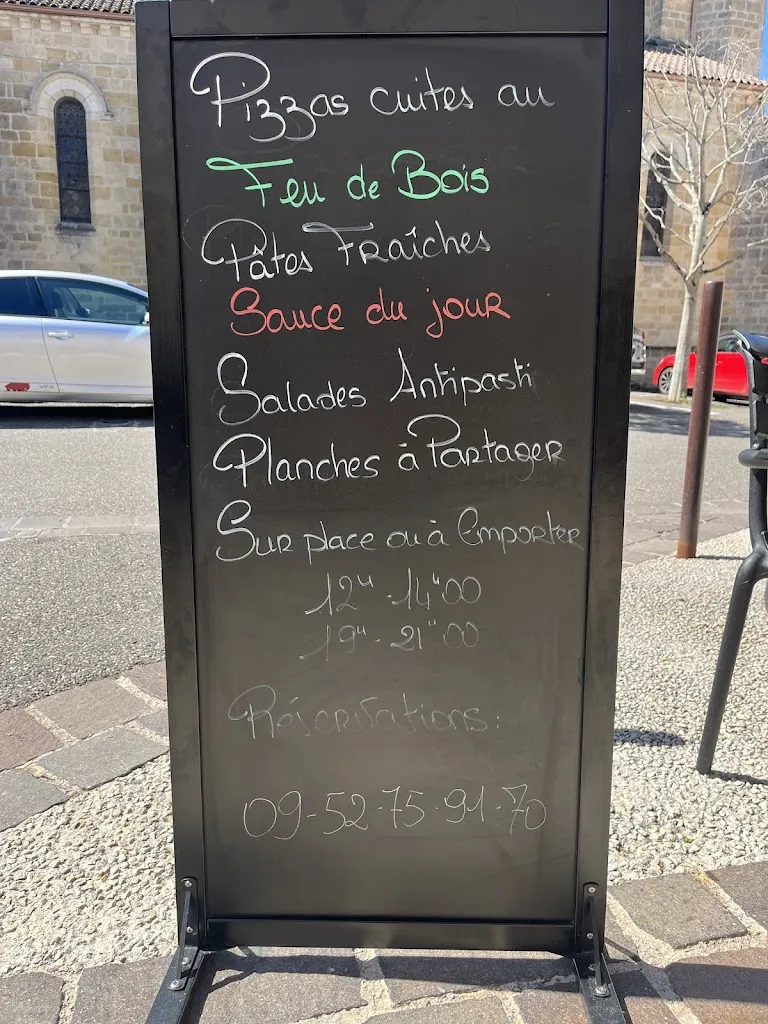 Pizzas cuites au
Feu de Bois
Pâtes Fraîches
Sauce du jour
Salades Antipasti
Planches à Partager
Sur place ou à Emporter
12H-14H00
19H-21H00
Réservations:
09-52-75-91-70